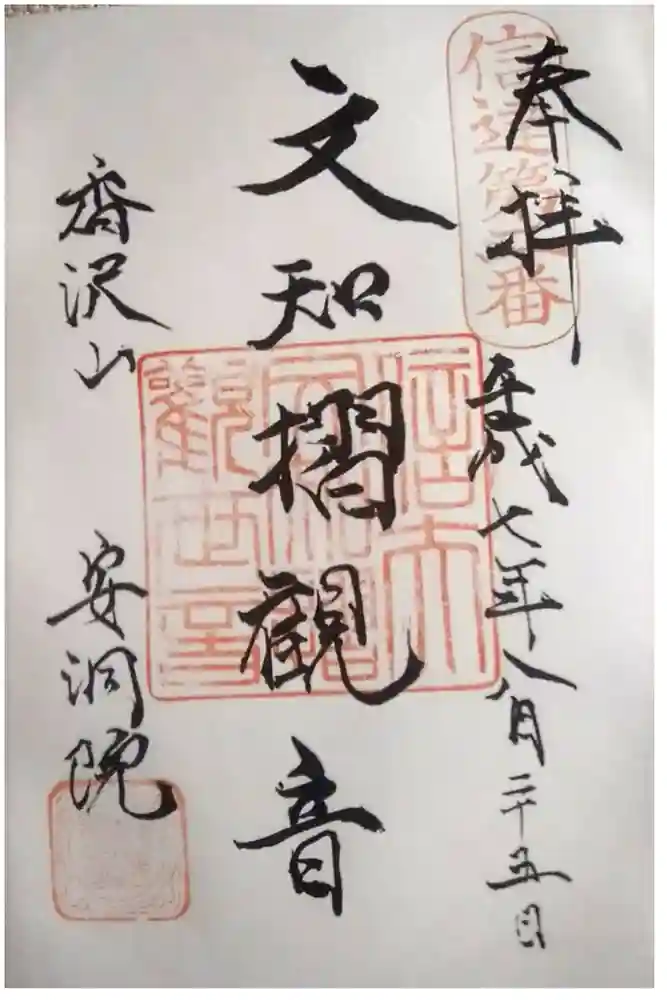 奉拝
信達第二番
平成七年八月二十五日
文知摺觀音
香沢山
安洞院